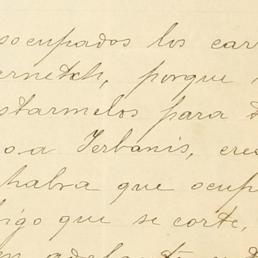 socupados los car
ernetch, porque
starmelos para t
o a Ferbanis, cre
habra que ocup
igo que se corte,